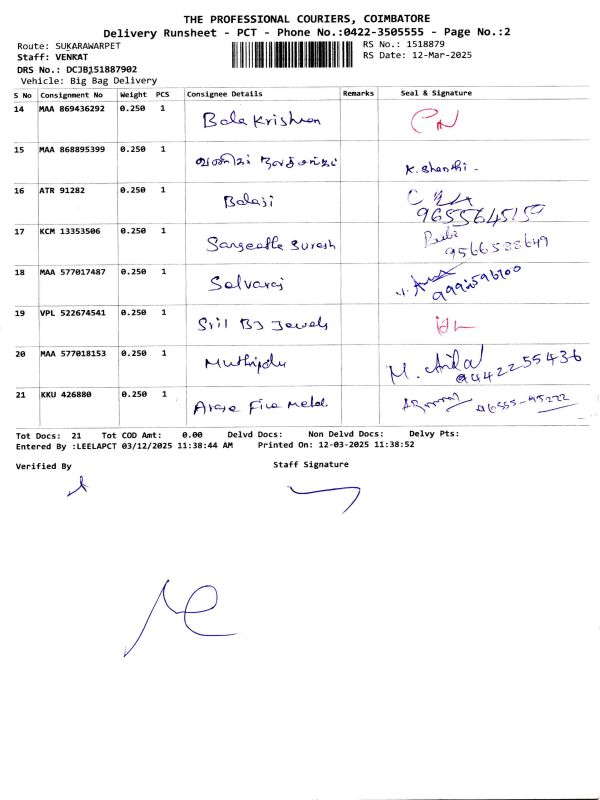 THE PROFESSIONAL COURIERS, COIMBATORE
Delivery Runsheet - PCT - Phone No.:0422-3505555 - Page No.:2
Route: SUKARAWARPET
RS No.: 1518879
Staff: VENKAT
RS Date: 12-Mar-2025
DRS No.: DCJB151887902
Vehicle: Big Bag Delivery
S No Consignment No Weight PCS Consignee Details Remarks Seal & Signature
14 MAA 869436292 0.250 1 Bala Krishnan
15 MAA 868895399 0.250 1 K. Shanthi.
16 ATR 91282 0.250 1 Balaji
9655645150
17 KCM 13353506 0.250 1 Sangeetha Suresh
9566538649
18 MAA 577017487 0.250 1 Selvaraj
19 VPL 522674541 0.250 1 Jewels
20 MAA 577018153 0.250 1 M.
9442255436
21 KKU 426880 0.250 1 Fire Metal
Tot Docs: 21 Tot COD Amt: 0.00 Delvd Docs: Non Delvd Docs: Delvy Pts:
Entered By :LEELAPCT 03/12/2025 11:38:44 AM Printed On: 12-03-2025 11:38:52
Verified By Staff Signature